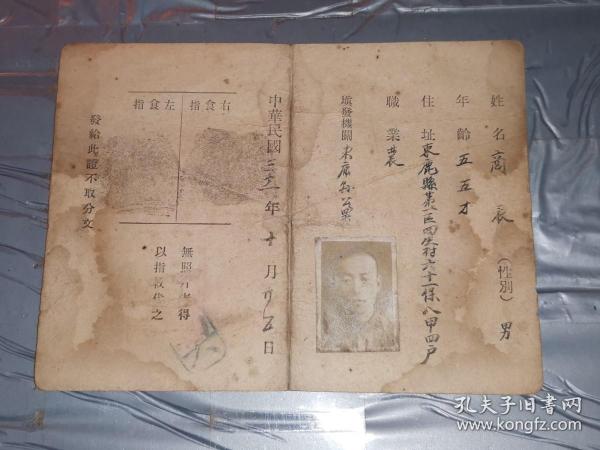 姓名 商 辰 (性別) 男
年齡 五五才
住址 束鹿縣第一區四
村六十一保八甲四戶
職業 農
填發機關 束鹿縣公署
中華民國三十一年十月廿五日
右食指
左食指
無照片者得
以指紋代之
發給此證不取分文
孔夫子旧书网
www.kongfz.com